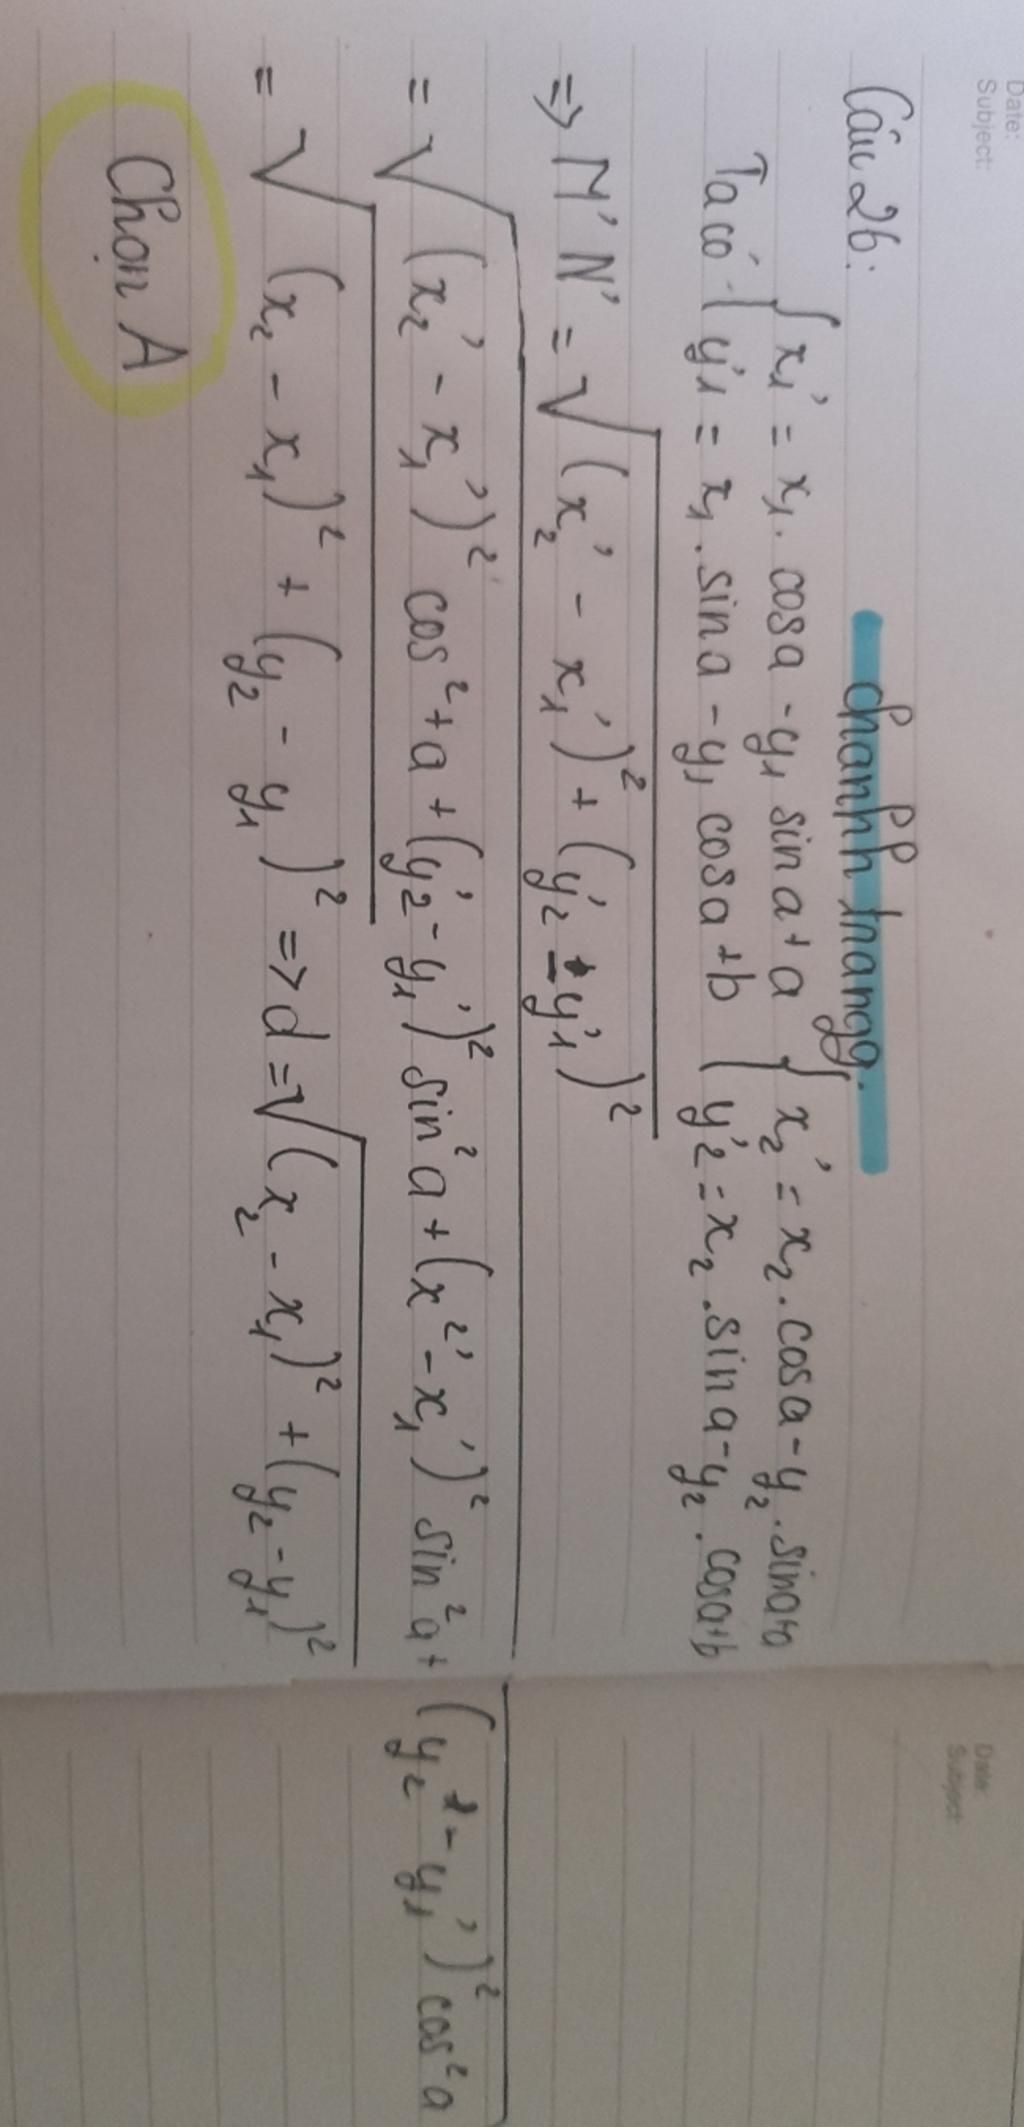 Date:
Subject:
Câu 26:
thanh trangg.
Ta có: { x₁' = x₁. cosa - y₁ sin a + a { x₂' = x₂. cosa - y₂. sina+a
{ y'₁ = x₁. sin a - y₁ cosa + b { y'₂ = x₂. sin a - y₂. cosa+b
=> M'N' = √(x₂' - x₁')² + (y'₂ - y'₁)²
= √(x₂' - x₁')² cos² + a + (y'₂ - y₁')² sin² a + (x²' - x₁')² sin² a + (y₂' - y₁')² cos² a
= √(x₂ - x₁)² + (y₂ - y₁)² => d = √(x₂ - x₁)² + (y₂ - y₁)²
Chọn A
Date:
Subject: